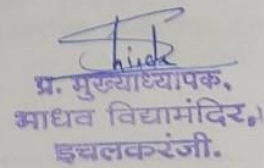 प्र. मुख्याध्यापक,
माधव विद्यामंदिर,
इचलकरंजी.